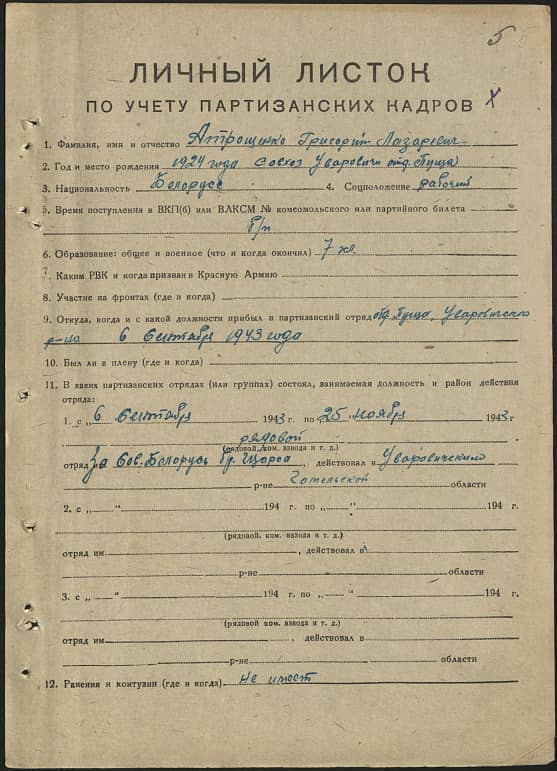 5
ЛИЧНЫЙ ЛИСТОК
ПО УЧЕТУ ПАРТИЗАНСКИХ КАДРОВ X
1. Фамилия, имя и отчество Атрощенко Григорий Лазаревич
2. Год и место рождения 1924 года Совхоз Уваровичи отд. Пуща
3. Национальность Белорусс 4. Соцположение рабочий
5. Время поступления в ВКП(б) или ВЛКСМ № комсомольского или партийного билета
б/п
6. Образование: общее и военное (что и когда окончил) 7 кл.
7. Каким РВК и когда призван в Красную Армию
8. Участие на фронтах (где и когда)
9. Откуда, когда и с какой должности прибыл в партизанский отряд отд. Пуща, Уваровичского
р-на 6 Сентября 1943 года
10. Был ли в плену (где и когда)
11. В каких партизанских отрядах (или группах) состоял, занимаемая должность и район действия
отряда:
1. с 6 Сентября 1943 г. по 25 ноября 1943 г
рядовой
(рядовой, ком. взвода и т. д.)
отряд За Сов. Белорусь бр. Щорса, действовал в Уваровичском
р-не Гомельской области
2. с „ — “ 194 г. по „ — “ 194 г.
(рядовой, ком. взвода и т. д.)
отряд им. , действовал в
р-не области
3. с „ — “ 194 г. по „ — “ 194 г.
(рядовой, ком. взвода и т. д.)
отряд им. , действовал в
р-не области
12. Ранения и контузии (где и когда) Не имеет